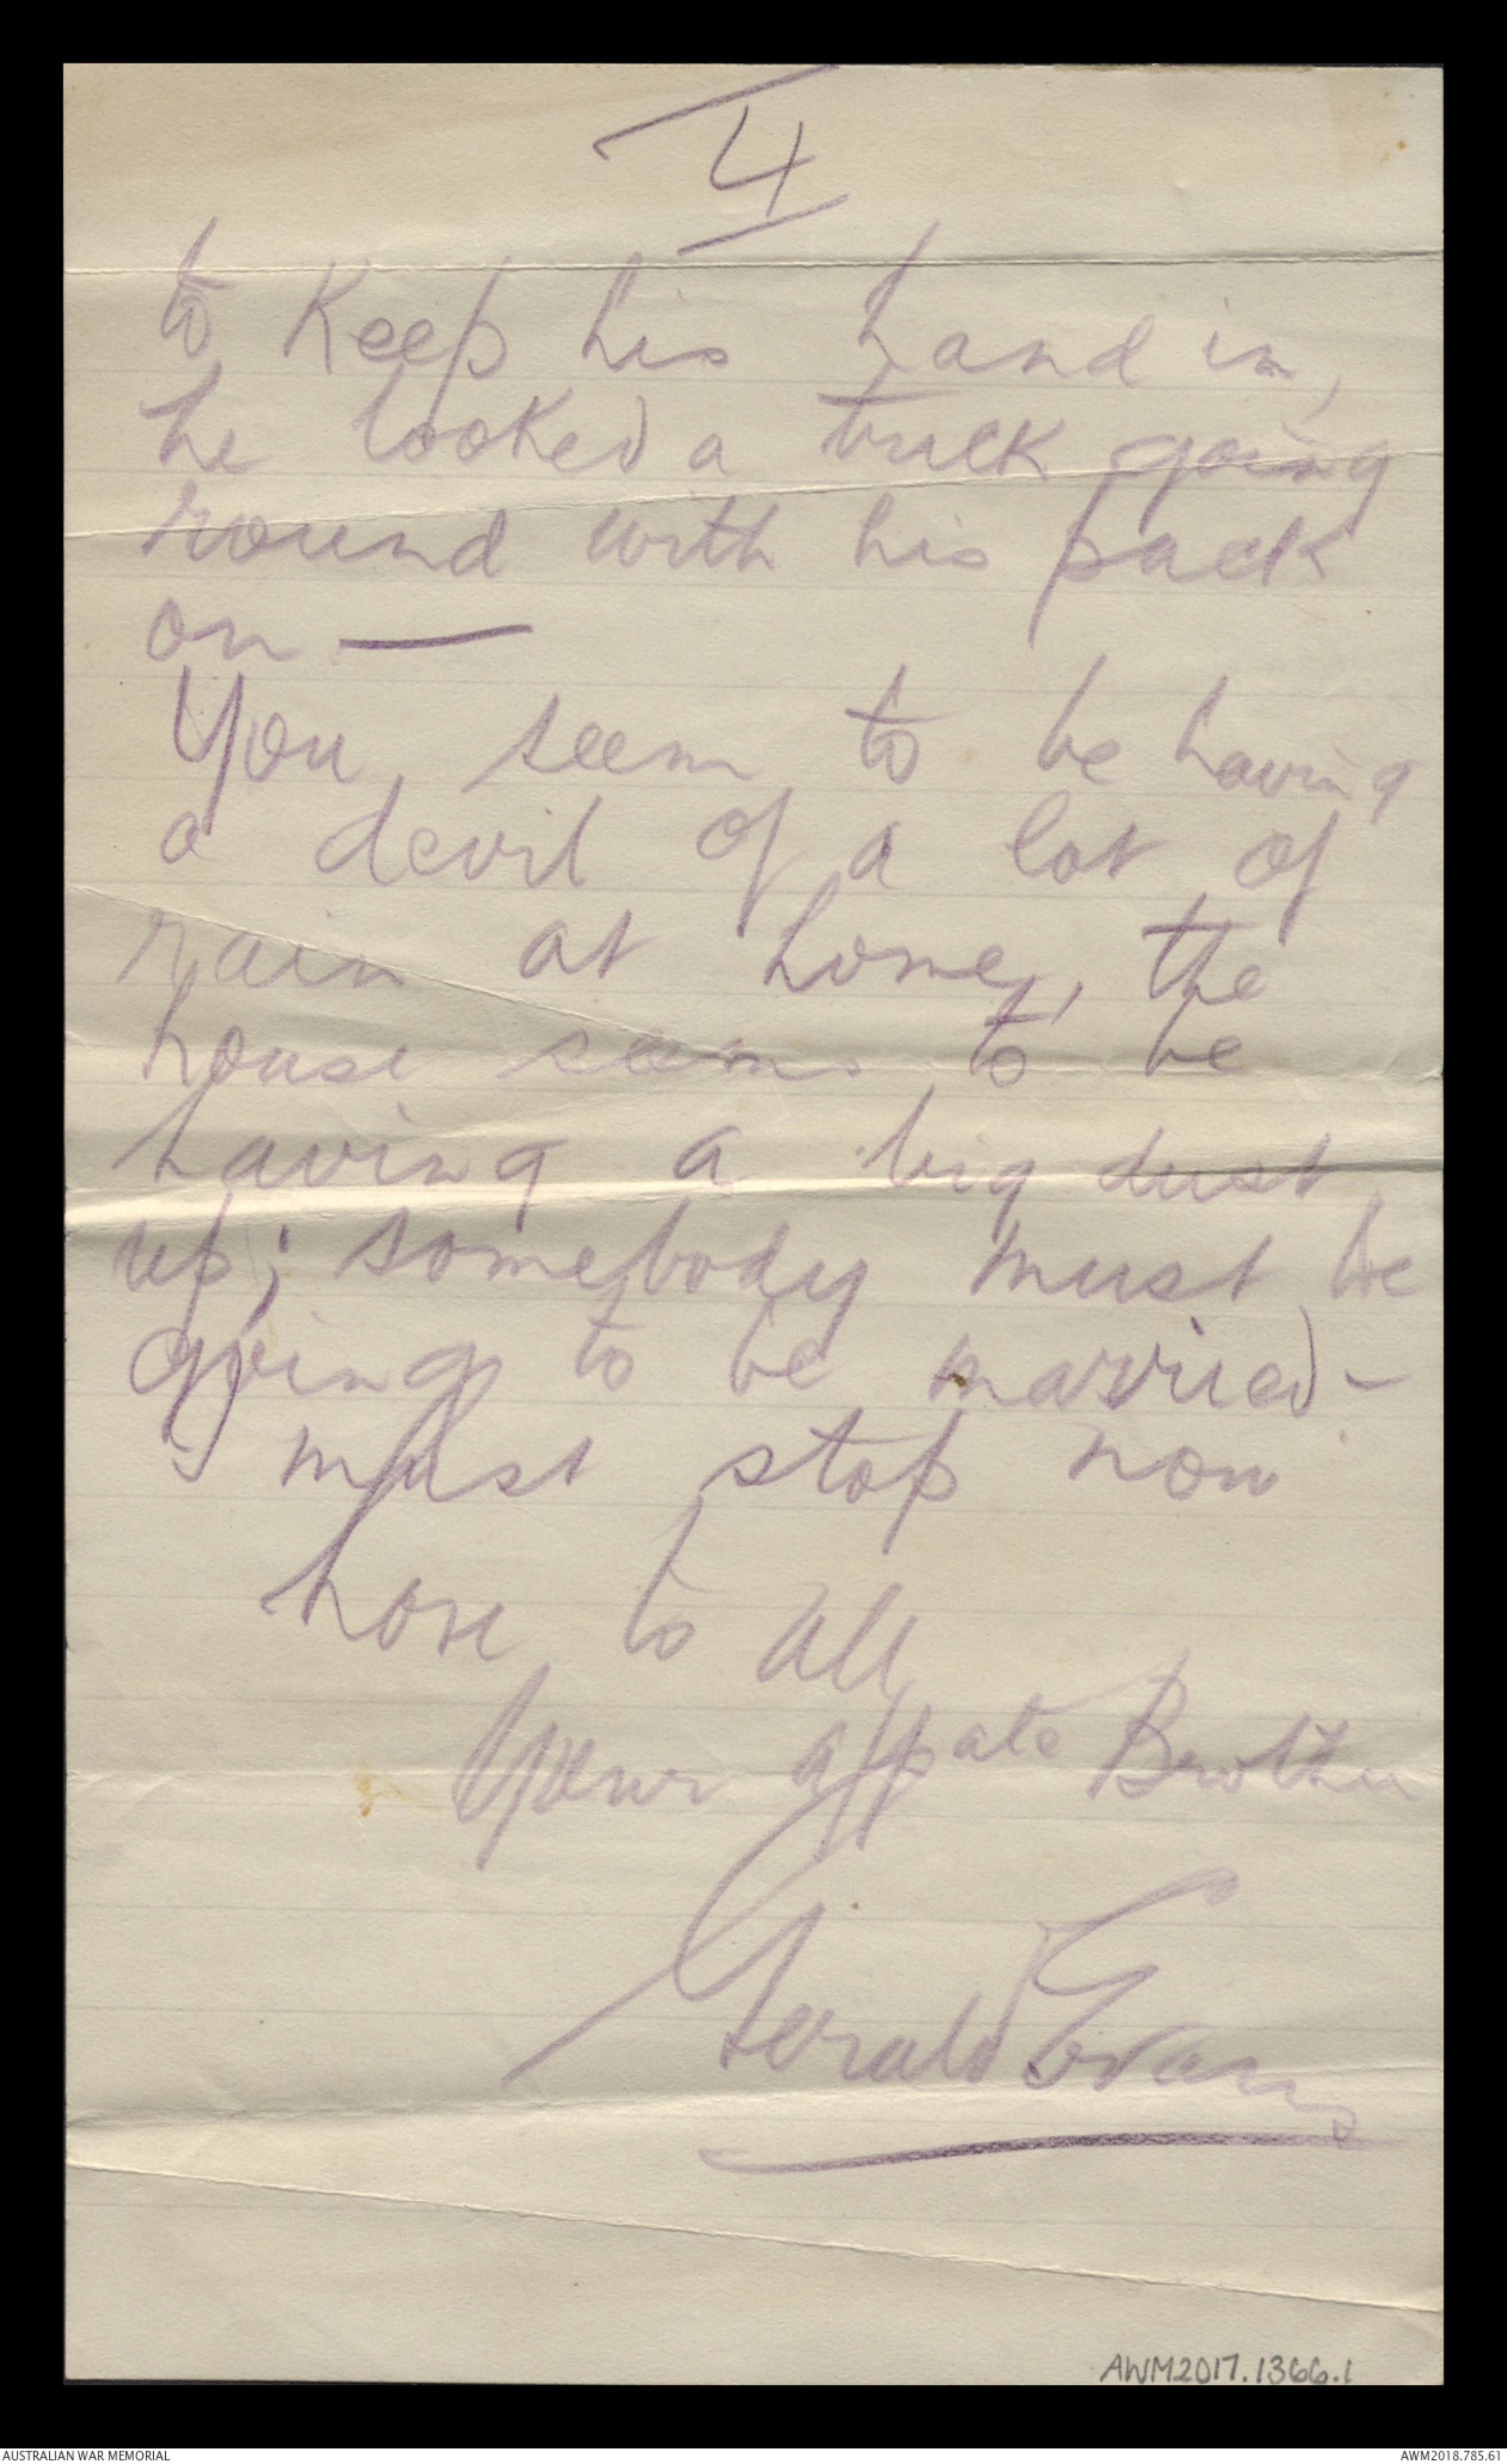 4
to Keep his hand in,
he looked a trick going
round with his pack
on —
You seem to be having
a devil of a lot of
rain at home, the
house seems to be
having a big dust
up; somebody must be
going to be married —
I must stop now
Love to all
Your affate Brother
Gerald Evans
AWM2017.1366.1
AUSTRALIAN WAR MEMORIAL
AWM2018.785.61